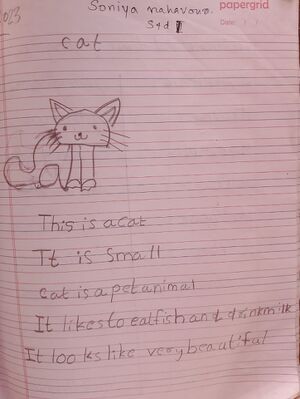 2023
Soniya
papergrid
Std 1
Date: / /
cat
This is a cat
It is small
cat is a pet animal
It likes to eat fish and drink milk
It looks like very beautiful